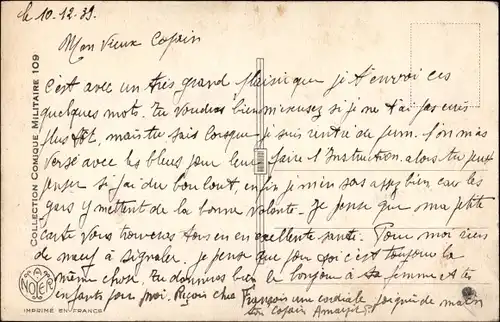 le 10.12.39.
Mon vieux Copain
C'est avec un très grand plaisir que je t'envoi ces
quelques mots. Tu voudras bien m'excusez si je ne t'ai pas écris
plus tôt, mais tu sais lorsque je suis rentré de perm. l'on m'as
versé avec les bleus pour leur faire l'Instruction. alors tu peux
penser si j'ai du boulout, enfin je m'en sors assez bien car les
gars y mettent de la bonne volonté. Je pense que ma petite
carte vous trouvera tous en excellente santé. Pour moi rien
de neuf à signaler. je pense que pour toi c'est toujours la
même chose. Tu donneras bien le bonjour à ta femme et tes
enfants pour moi. Reçois cher François une cordiale poignée de main
Ton Copain
COLLECTION COMIQUE MILITAIRE 109
NOYER
IMPRIMÉ EN FRANCE